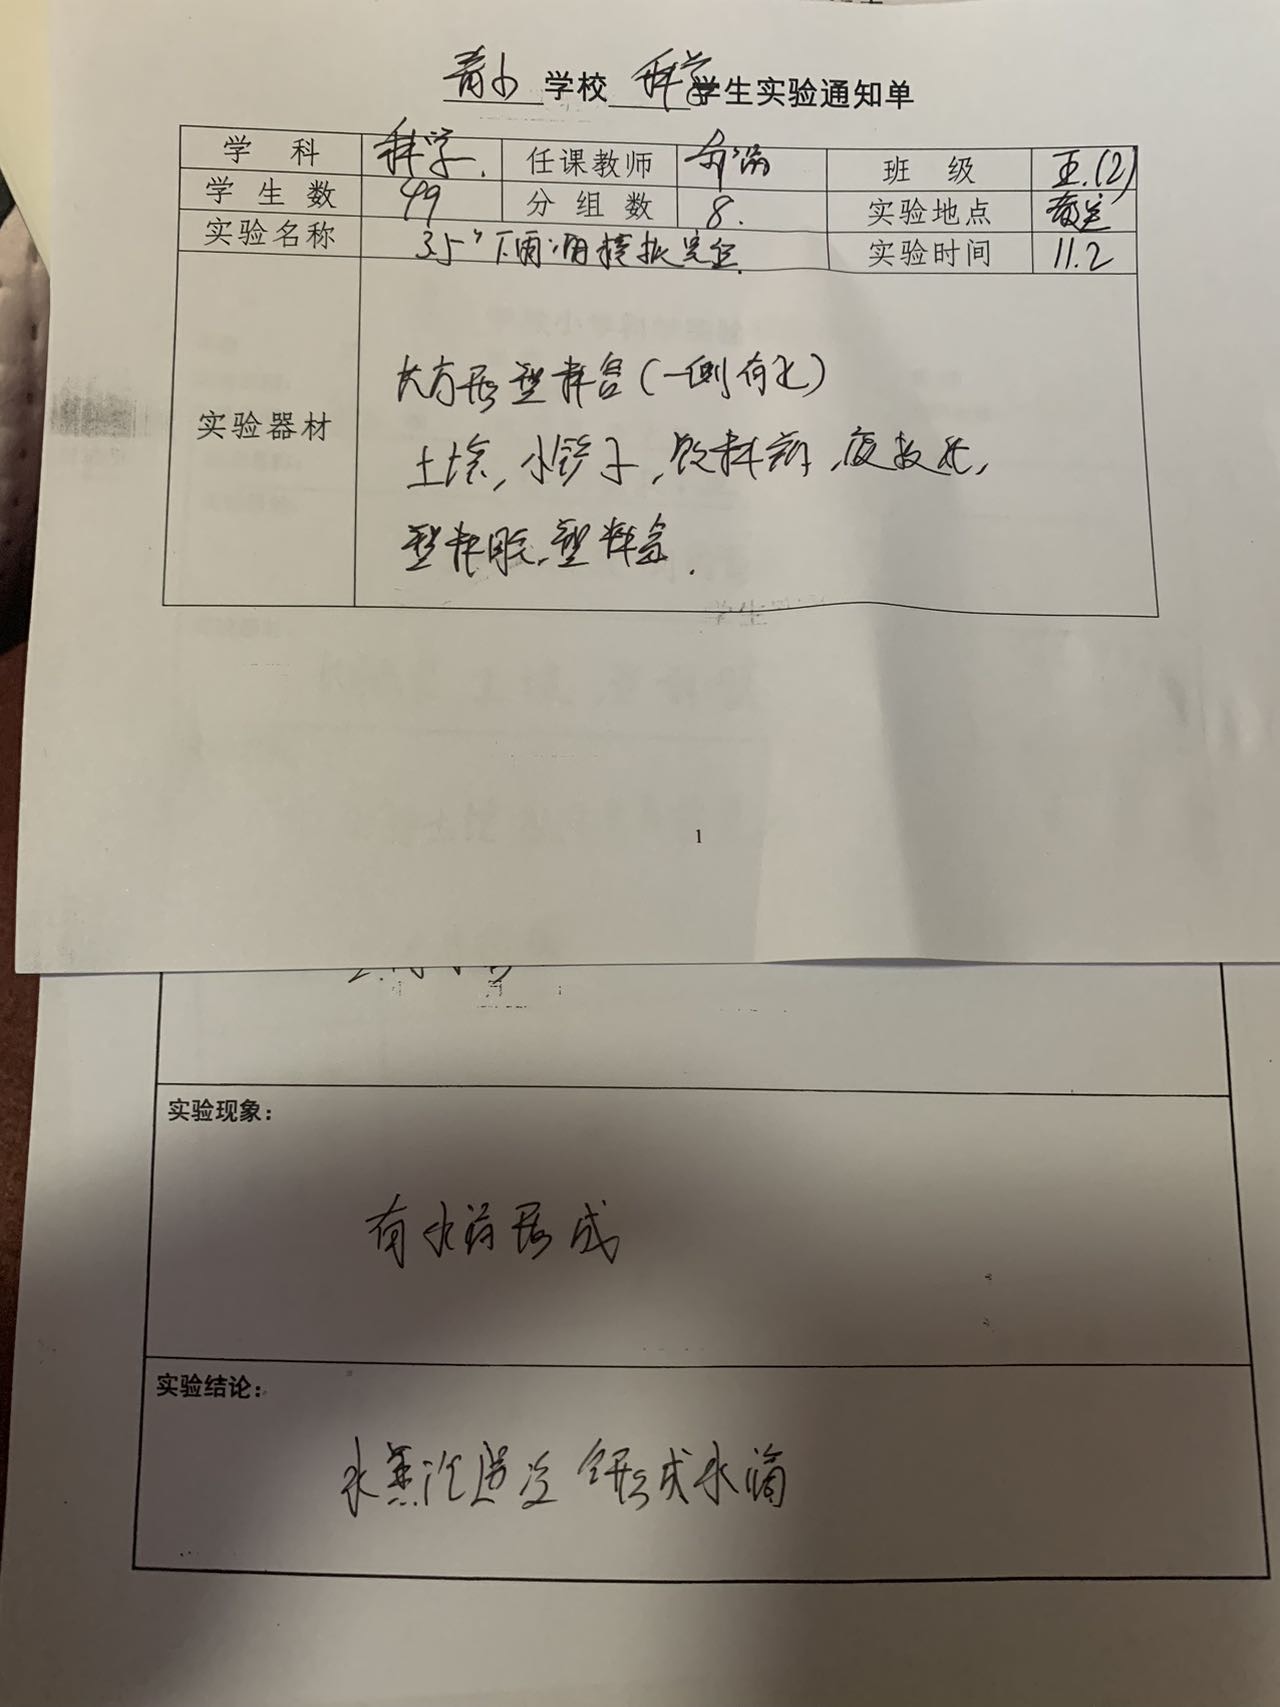 青小学校科学学生实验通知单
学科 科学. 任课教师 班级 五.(2)
学生数 49 分组数 8. 实验地点 教室
实验名称 实验时间 11.2
实验器材
长方形塑料盒(一侧有孔)
土壤,小铲子,饮料瓶,
塑料膜,塑料盒.
1
实验现象:
有水滴形成
实验结论:
水蒸汽遇冷会形成水滴